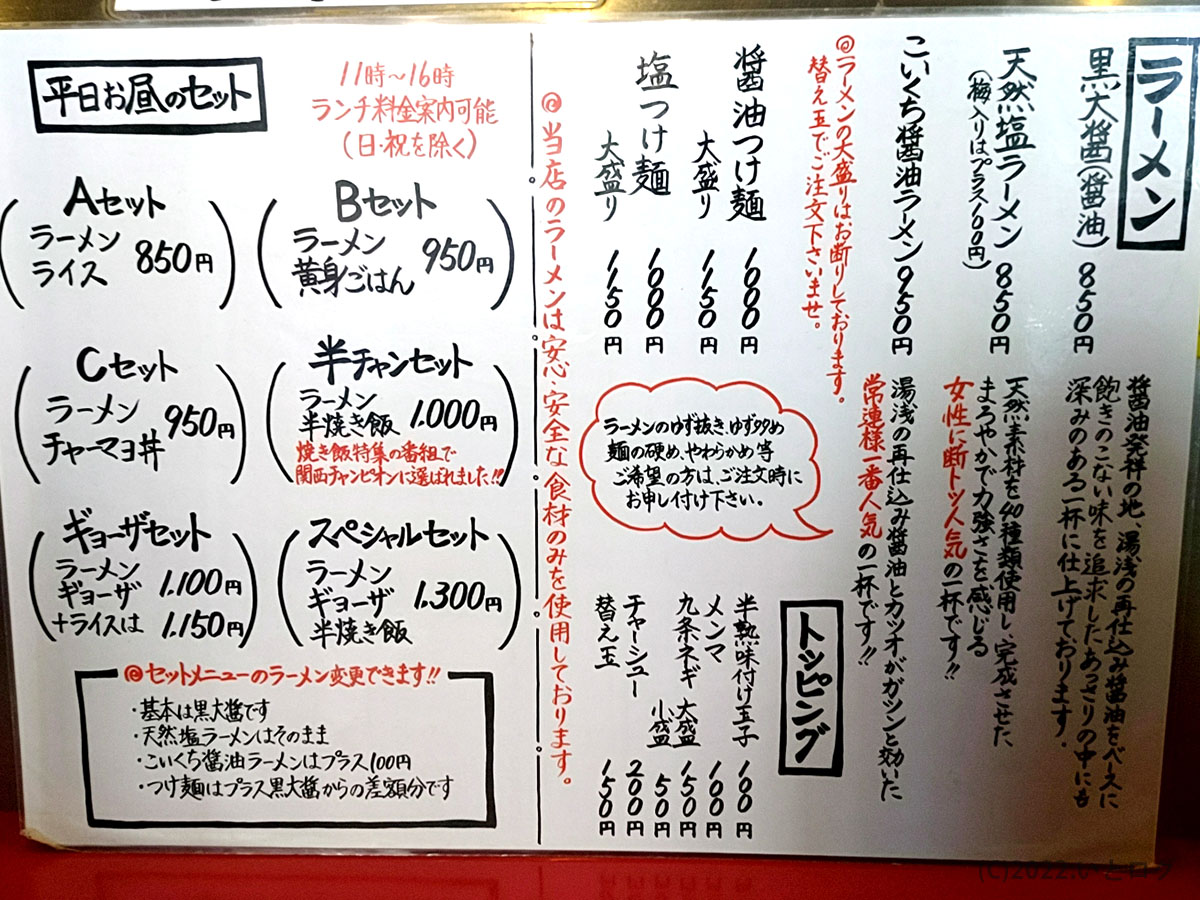 ラーメン
黒大醤(醤油) 850円
醤油発祥の地、湯浅の再仕込み醤油をベースに
飽きのこない味を追求したあっさりの中にも
深みのある一杯に仕上げております。
天然塩ラーメン 850円
(梅入りはプラス100円)
天然素材を40種類使用し、完成させた
まろやかで力強さを感じる
女性に断トツ人気の一杯です!!
こいくち醤油ラーメン 950円
湯浅の再仕込み醤油とカツオがガツンと効いた
常連様一番人気の一杯です!!
@ラーメンの大盛りはお断りしております。
替え玉でご注文下さいませ。
醤油つけ麺 1000円
大盛り 1150円
塩つけ麺 1000円
大盛り 1150円
ラーメンのゆず抜き、ゆず多め
麺の硬め、やわらかめ等
ご希望の方は、ご注文時に
お申し付け下さい。
トッピング
半熟味付け玉子 100円
メンマ 100円
九条ネギ 大盛 150円
小盛 50円
チャーシュー 200円
替え玉 150円
@当店のラーメンは安心・安全な食材のみを使用しております。
平日お昼のセット
11時~16時
ランチ料金案内可能
(日・祝を除く)
Aセット
ラーメン
ライス 850円
Bセット
ラーメン
黄身ごはん 950円
Cセット
ラーメン
チャーマヨ丼 950円
半チャンセット
ラーメン
半焼き飯 1.000円
焼き飯特集の番組で
関西チャンピオンに選ばれました!!
ギョーザセット
ラーメン
ギョーザ 1.100円
+ライスは 1.150円
スペシャルセット
ラーメン
ギョーザ 1.300円
半焼き飯
@セットメニューのラーメン変更できます!!
・基本は黒大醤です
・天然塩ラーメンはそのまま
・こいくち醤油ラーメンはプラス100円
・つけ麺はプラス黒大醤からの差額分です